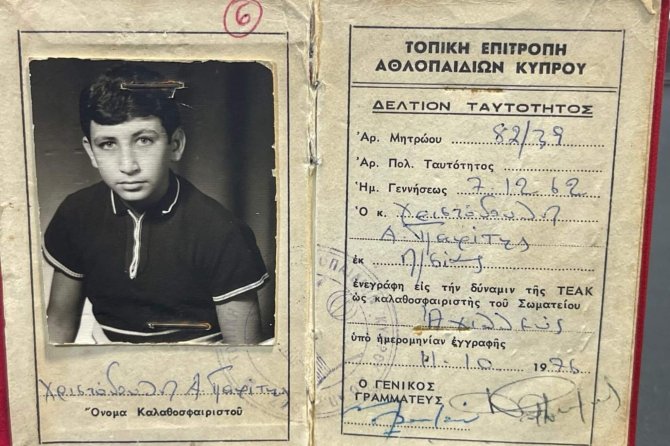 6
Χριστόδουλη Α.
Ὄνομα Καλαθοσφαιριστοῦ
ΤΟΠΙΚΗ ΕΠΙΤΡΟΠΗ
ΑΘΛΟΠΑΙΔΙΩΝ ΚΥΠΡΟΥ
ΔΕΛΤΙΟΝ ΤΑΥΤΟΤΗΤΟΣ
Ἀρ. Μητρώου 82/39
Ἀρ. Πολ. Ταυτότητος
Ἡμ. Γεννήσεως 7.12.62
Ὁ κ. Χριστόδουλη
Α.
ἐκ
ἐνεγράφη εἰς τὴν δύναμιν τῆς ΤΕΑΚ
ὡς καλαθοσφαιριστὴς τοῦ Σωματείου
Ἀχιλλεύς
ὑπὸ ἡμερομηνίαν ἐγγραφῆς
11-10 1976
Ο ΓΕΝΙΚΟΣ
ΓΡΑΜΜΑΤΕΥΣ